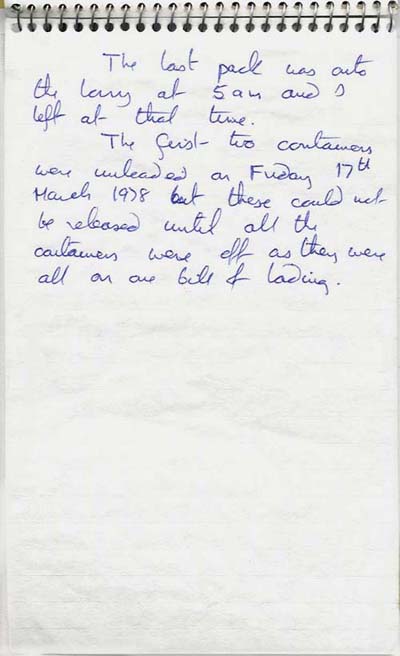 The last pack was onto
the lorry at 5am and I
left at that time.
The first two containers
were unloaded on Friday 17th
March 1978 but these could not
be released until all the
containers were off as they were
all on one bill of lading.